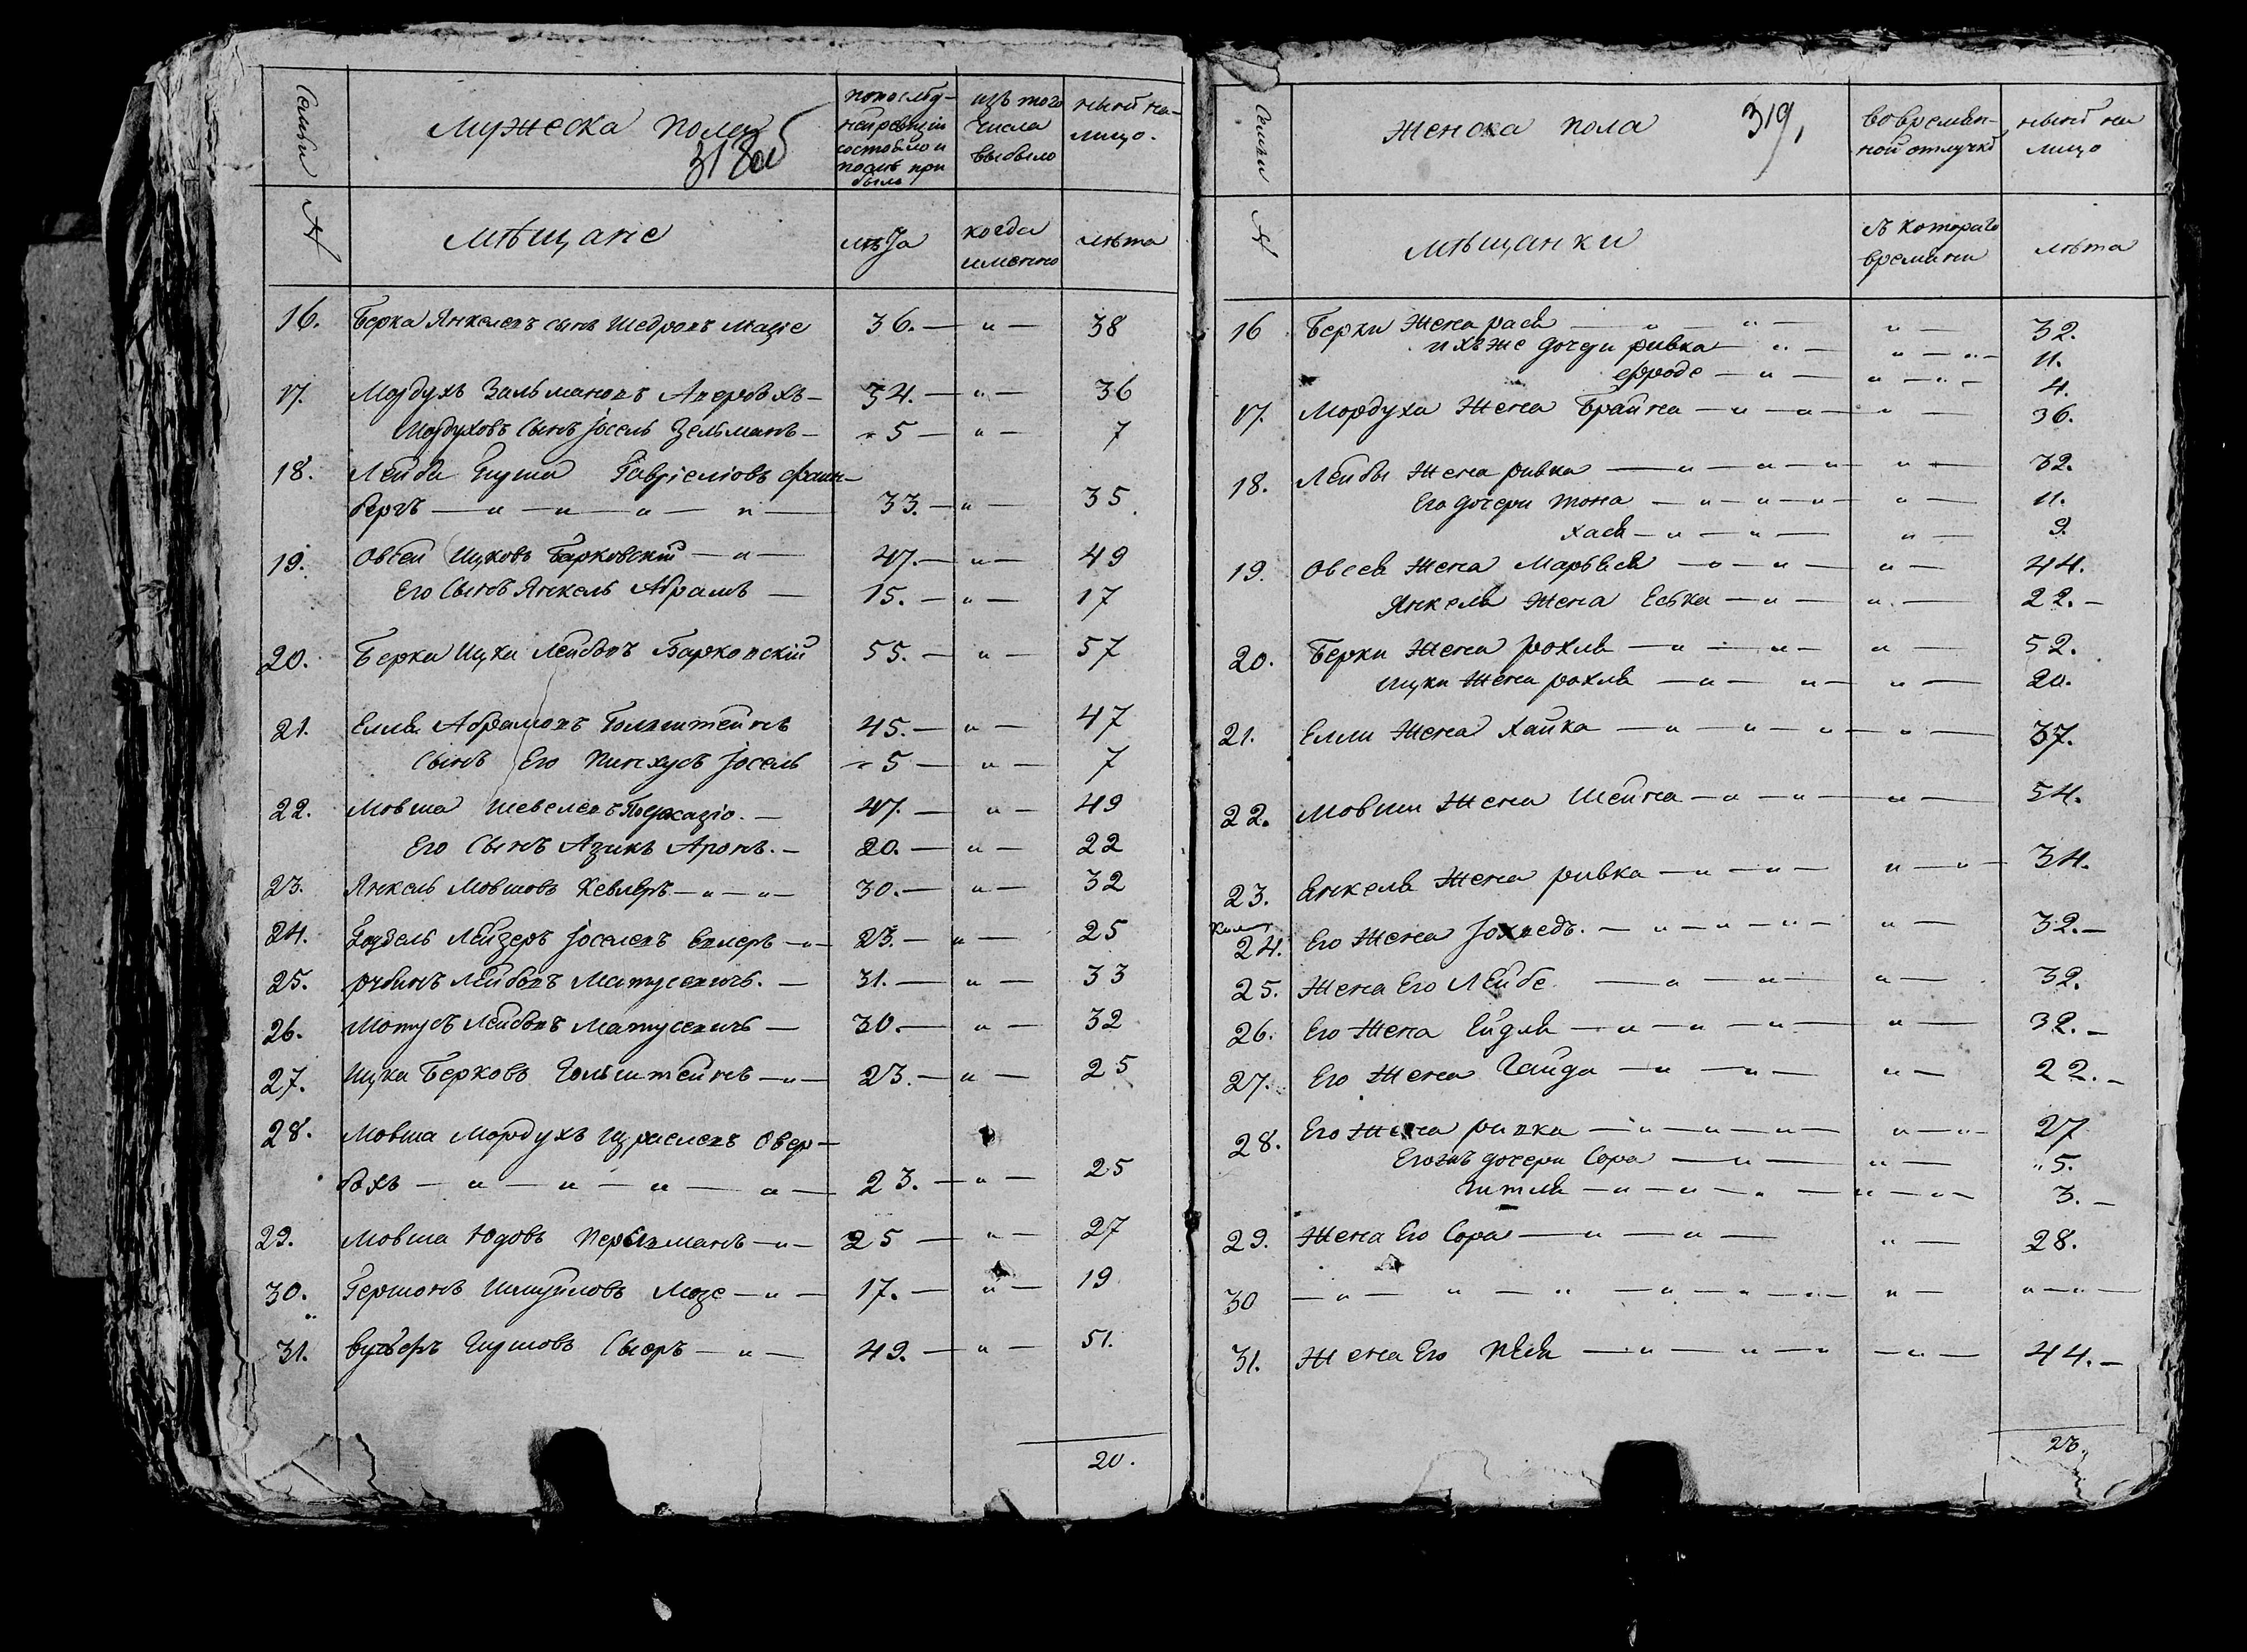 Семьи №
Мужеска пола
318 об
по послѣдней ревизіи состояло и послѣ прибыло
изъ того числа выбыло
нынѣ на лицо.
Мѣщане
лѣта
когда именно
лѣта
16. Берка Янкелевъ сынъ 36. — „ — 38
17. Мордухъ Зальмановъ — 34. — „ — 36
Мордуховъ Сынъ Іосель Зельманъ — „ 5 — „ — 7
18. Лейба Гавріеліовъ Фаин-
бергъ — „ — „ — „ — „ — 33. — „ — 35
19. Овсей Ицковъ Барковскій — „ — 47. — „ — 49
Его Сынъ Янкель Абрамъ — 15. — „ — 17
20. Берка Ицки Лейбовъ Барковскій 55. — „ — 57
21. Елля Абрамовъ Гольштейнъ 45. — „ — 47
Сынъ Его Пинхусъ Іосель „ 5 — „ — 7
22. Мовша Шевелевъ 47. — „ — 49
Его Сынъ Азикъ Аронъ. — 20. — „ — 22
23. Янкель Мовшовъ — „ — „ — 30. — „ — 32
24. Лейзеръ Іоселевъ — „ — 23. — „ — 25
25. Рубинъ Лейбовъ Матусевичъ. — 31. — „ — 33
26. Мотусъ Лейбовъ Матусевичъ — 30. — „ — 32
27. Ицка Берковъ Гольштейнъ — „ — 23. — „ — 25
28. Мовша Мордухъ Израелевъ Овер-
бухъ — „ — „ — „ — „ — 23. — „ — 25
29. Мовша Юдовъ Перельманъ — „ — 25 — „ — 27
30. Гершонъ Шмуйловъ Мазе — „ — 17. — „ — 19
31. — „ — 49. — „ — 51.
20.
Семьи №
Женска пола
319,
во времян-ной отлучкѣ
нынѣ на лицо
мѣщанки
съ котораго времяни
лѣта
16 Берки Жена Рася — „ — „ — „ — 32.
ихъ же дочери Ривка — „ — „ — „ — 11.
Фроде — „ — „ — „ — 4.
17. Мордуха Жена Брайна — „ — „ — „ — 36.
18. Лейбы Жена Ривка — „ — „ — „ — „ — 32.
Его дочери — „ — „ — „ — „ — 11.
Хася — „ — „ — „ — 9.
19. Овсея Жена Марьяся — „ — „ — „ — 44.
Янкеля Жена Еська — „ — „ — 22. —
20. Берки Жена Рохля — „ — „ — „ — 52.
Ицки Жена Рохля — „ — „ — „ — 20.
21. Елли Жена Хайка — „ — „ — „ — „ — 37.
22. Мовши Жена Шейна — „ — „ — „ — 54.
23. Янкеля Жена Ривка — „ — „ — „ — „ — 34.
24. Его Жена Іохведъ. — „ — „ — „ — „ — 32. —
25. Жена Его Лейбе — „ — „ — „ — 32.
26. Его Жена Ейдля — „ — „ — „ — „ — 32. —
27. Его Жена — „ — „ — „ — 22. —
28. Его Жена Ривка — „ — „ — „ — „ — „ — 27
Его жъ дочери Сора — „ — „ — „ 5.
Гитля — „ — „ — „ — „ — „ — 3. —
29. Жена Его Сора — „ — „ — „ — 28.
30 — „ — „ — „ — „ — „ — „ — „ — „ — „ —
31. Жена Его — „ — „ — „ — „ — 44. —
23.